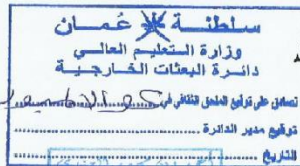 سلطنة عُمان
وزارة التعليم العالي
دائرة البعثات الخارجية
نصادق على توقيع الملحق الثقافي في
توقيع مدير الدائرة
التاريخ